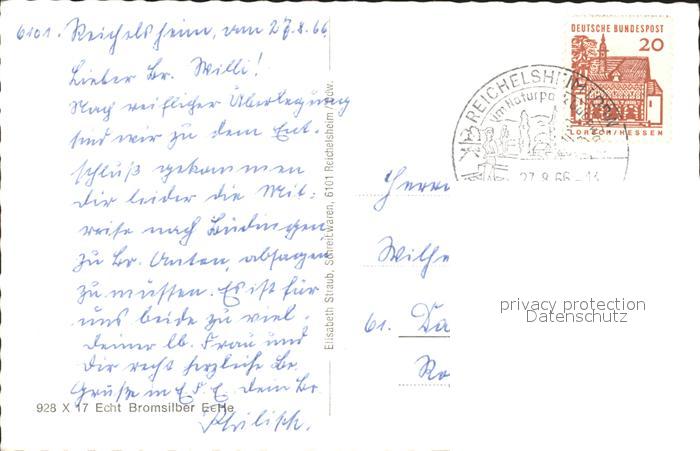 6101. Reichelsheim, am 27.8.66
Lieber Br. Willi!
Nach reiflicher Überlegung
sind wir zu dem Ent-
schluß gekommen
Dir leider die Mit-
reise nach Büdingen,
zu Br. Anton, absagen
zu müssen. Es ist für
uns beide zu viel.
Deiner lb. Frau und
Dir recht herzliche Br.
Grüße in dein Br.
928 X 17 Echt Bromsilber
Elisabeth Straub, Schreibwaren, 6101 Reichelsheim / Odw.
DEUTSCHE BUNDESPOST
20
LORSCH/HESSEN
REICHELSHEIM
Im Naturpa
27.8.66-14
Herrn
Wilhe
61. Da
Ro
privacy protection
Datenschutz